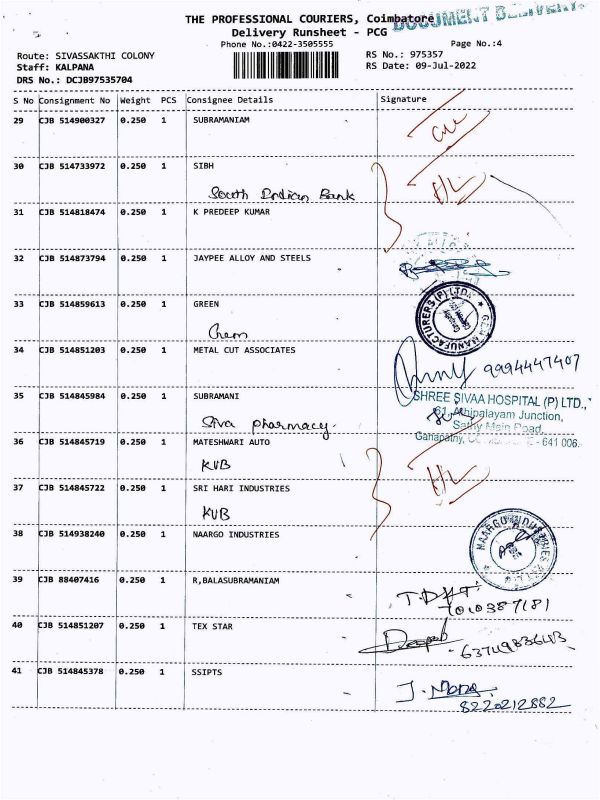 DOCUMENT DELIVERY
THE PROFESSIONAL COURIERS, Coimbatore
Delivery Runsheet - PCG
Phone No.:0422-3505555
Page No.:4
Route: SIVASSAKTHI COLONY
Staff: KALPANA
DRS No.: DCJB97535704
RS No.: 975357
RS Date: 09-Jul-2022
S No Consignment No Weight PCS Consignee Details Signature
29 CJB 514900327 0.250 1 SUBRAMANIAM
30 CJB 514733972 0.250 1 SIBH
South Indian Bank
31 CJB 514818474 0.250 1 K PREDEEP KUMAR
32 CJB 514873794 0.250 1 JAYPEE ALLOY AND STEELS
33 CJB 514859613 0.250 1 GREEN
Chem
34 CJB 514851203 0.250 1 METAL CUT ASSOCIATES
9994447407
35 CJB 514845984 0.250 1 SUBRAMANI
Siva pharmacy.
SHREE SIVAA HOSPITAL (P) LTD.,
61, Athipalayam Junction,
Sathy Main Road,
Ganapathy, - 641 006.
36 CJB 514845719 0.250 1 MATESHWARI AUTO
KVB
37 CJB 514845722 0.250 1 SRI HARI INDUSTRIES
KVB
38 CJB 514938240 0.250 1 NAARGO INDUSTRIES
NAARGO INDUSTRIES
39 CJB 88407416 0.250 1 R,BALASUBRAMANIAM
7010387181
40 CJB 514851207 0.250 1 TEX STAR
41 CJB 514845378 0.250 1 SSIPTS
8220212882